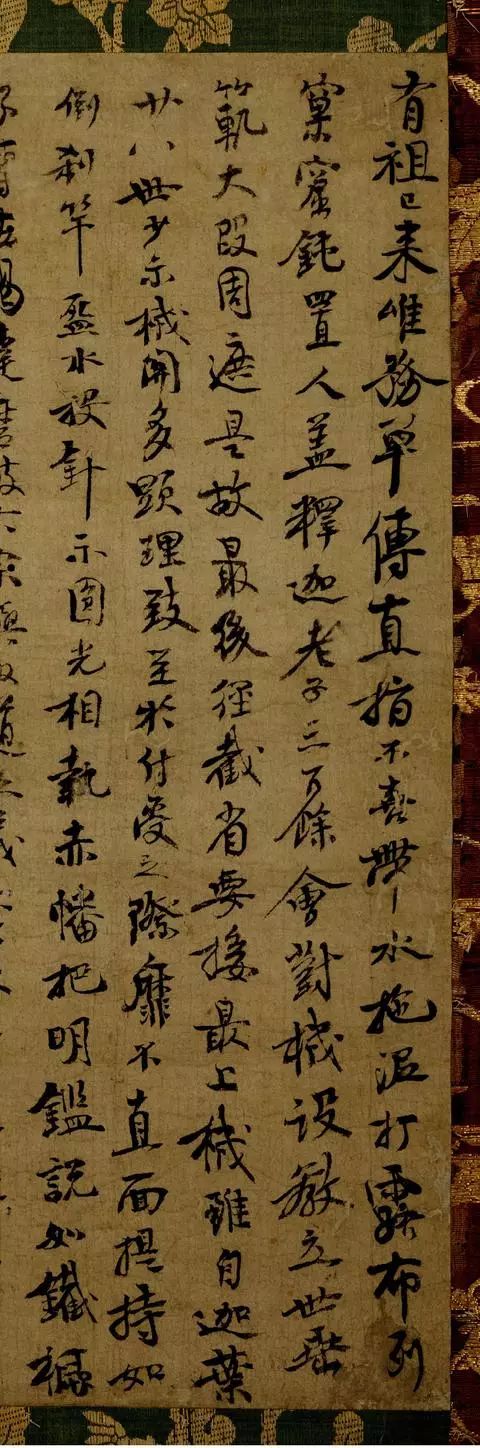 有祖已来唯務單傳直指不喜帶水拖泥打露布列
窠窟鈍置人盖釋迦老子三百餘會對機設教立世垂
範軌大段周遮是故最後徑截省要接最上機雖自迦葉
廿八世少示機関多顕理致至於付受之際靡不直面提持如
倒刹竿盋水投針示圓光相執赤幡把明鑑説如鐵橛